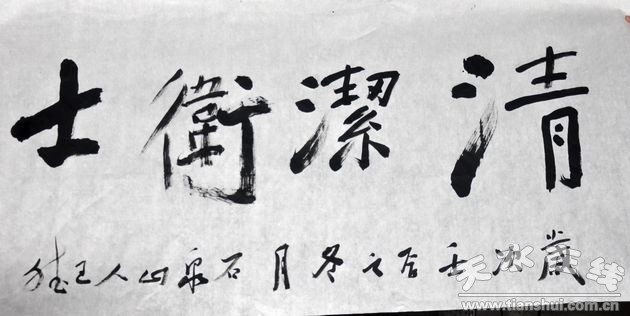 清潔衛士
歲次壬辰之冬月石泉山人王
天水在线
www.tianshui.com.cn